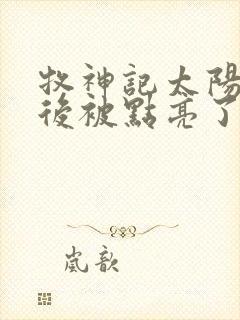 牧神記太陽
後被點亮了
嵐歆